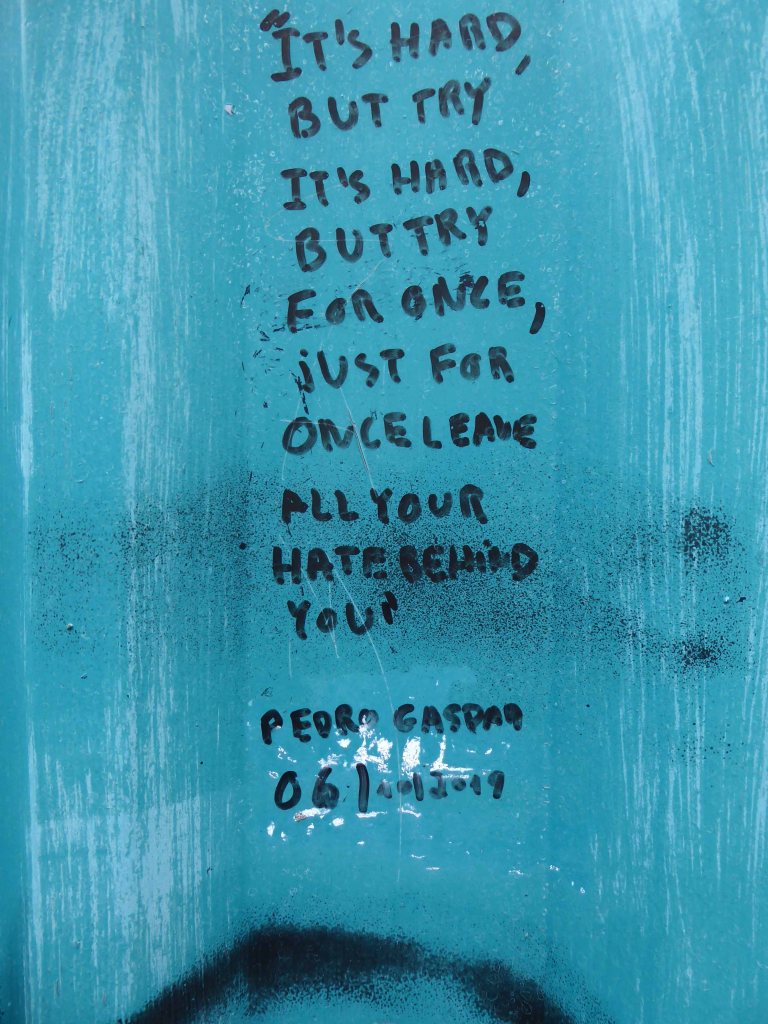 "IT'S HARD,
BUT TRY
IT'S HARD,
BUT TRY
FOR ONCE,
JUST FOR
ONCE LEAVE
ALL YOUR
HATE BEHIND
YOU"
PEDRO GASPAR
06/